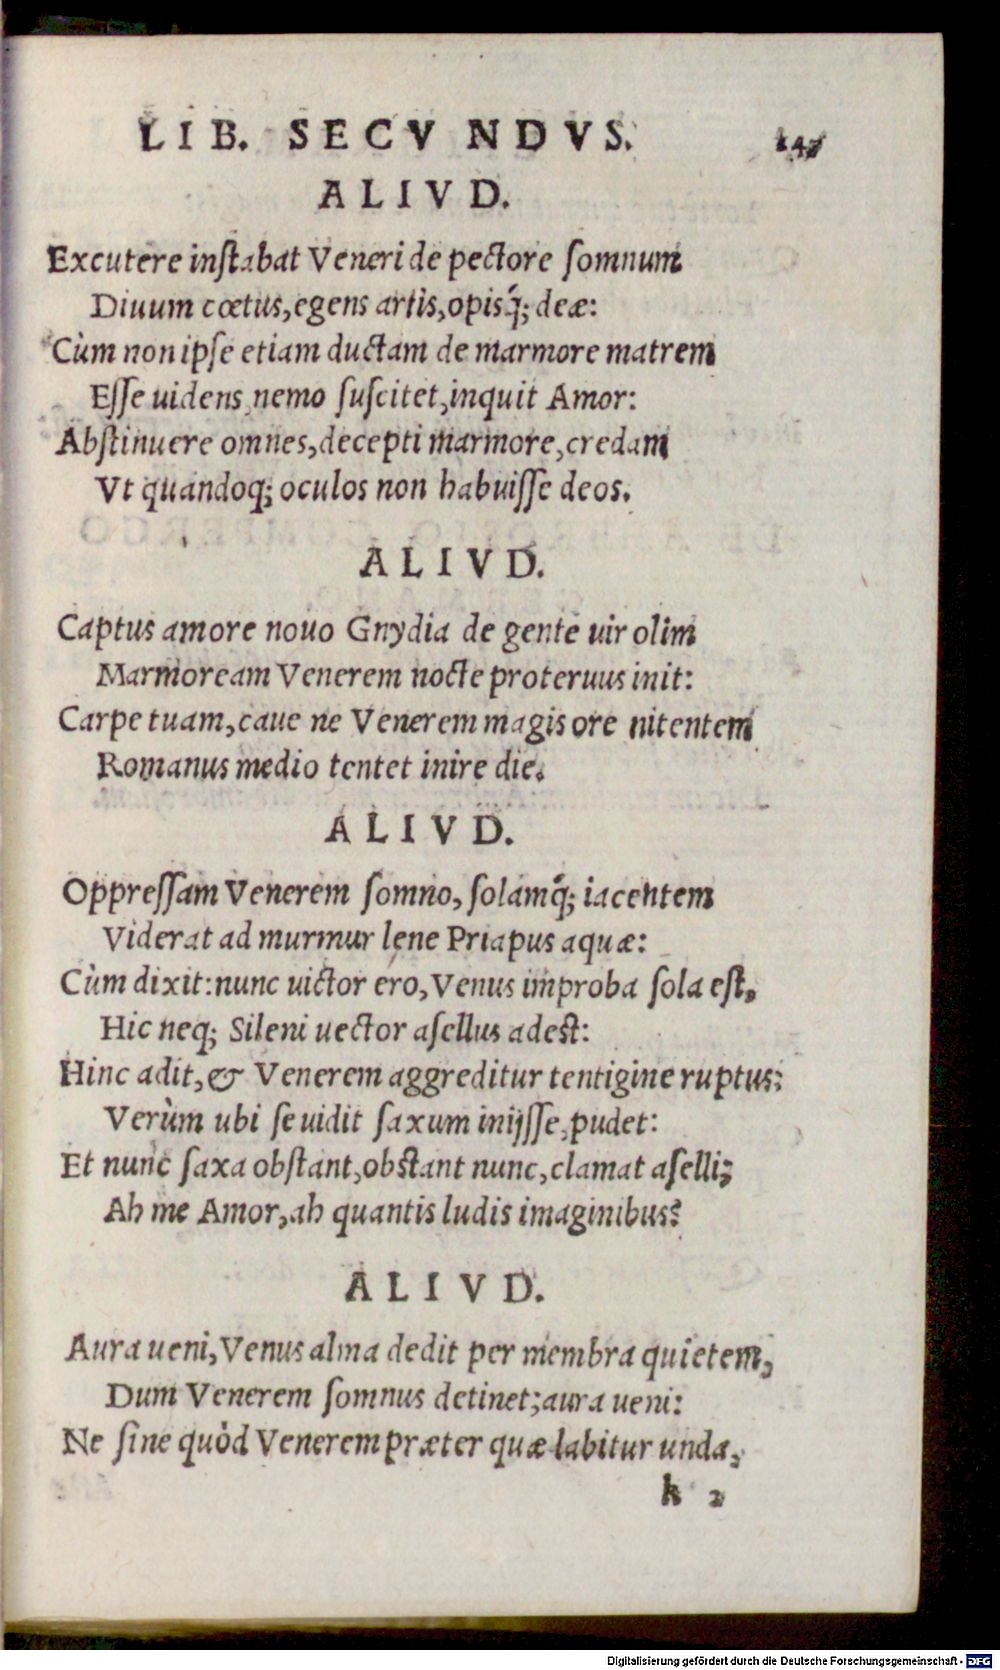 LIB. SECVNDVS. 147
ALIVD.
Excutere instabat Veneri de pectore somnum
Diuum cœtus, egens artis, opisq́; deæ:
Cùm non ipse etiam ductam de marmore matrem
Esse uidens, nemo suscitet, inquit Amor:
Abstinuere omnes, decepti marmore, credam
Vt quandoq; oculos non habuisse deos.
ALIVD.
Captus amore nouo Gnydia de gente uir olim
Marmoream Venerem nocte proteruus init:
Carpe tuam, caue ne Venerem magis ore nitentem
Romanus medio tentet inire die.
ALIVD.
Oppressam Venerem somno, solamq́; iacentem
Viderat ad murmur lene Priapus aquæ:
Cùm dixit: nunc uictor ero, Venus improba sola est,
Hic neq; Sileni uector asellus adest:
Hinc adit, & Venerem aggreditur tentigine ruptus:
Verùm ubi se uidit saxum inijsse, pudet:
Et nunc saxa obstant, obstant nunc, clamat aselli;
Ah me Amor, ah quantis ludis imaginibus?
ALIVD.
Aura ueni, Venus alma dedit per membra quietem,
Dum Venerem somnus detinet; aura ueni:
Ne sine quòd Venerem præter quæ labitur unda,
k 2
Digitalisierung gefördert durch die Deutsche Forschungsgemeinschaft - DFG